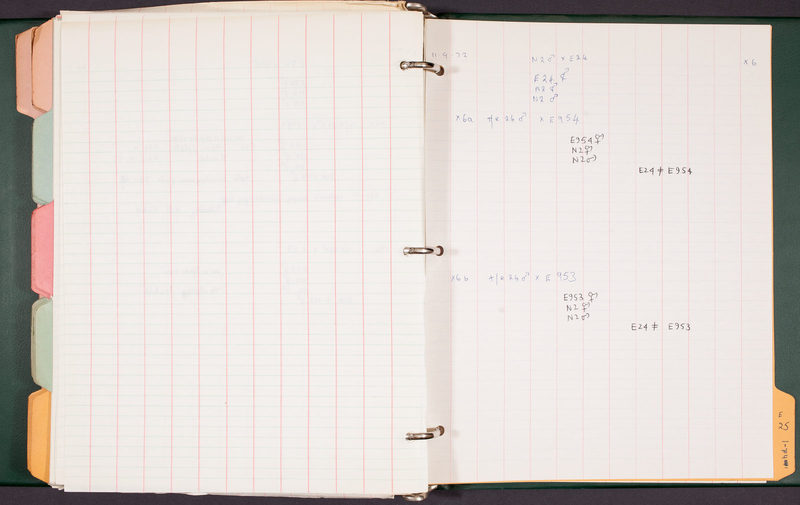 11.9.72 N2 ♂ × E24 ×6
E24 ⚥
N2 ⚥
N2 ♂
×6a +/e24 ♂ × E954
E954 ⚥
N2 ⚥
N2 ♂
E24 ≠ E954
×6b +/e24 ♂ × E953
E953 ⚥
N2 ⚥
N2 ♂
E24 ≠ E953
E
25